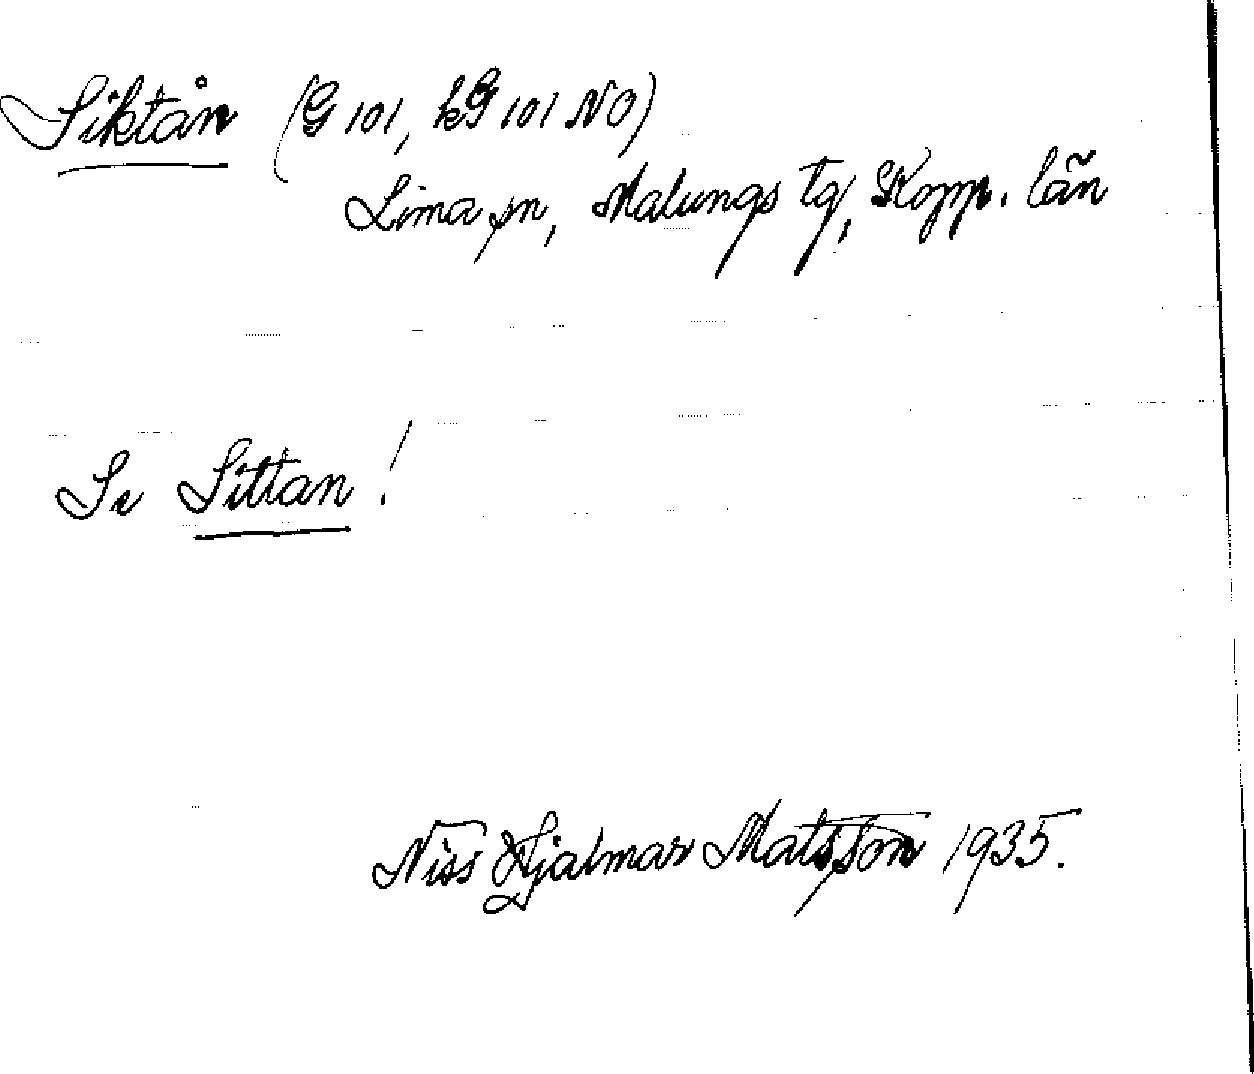 Siktån (G 101, kG 101 NO)
Lima sn, Malungs tg, Kopp. län
Se Sittan!
Niss Hjalmar Matsson 1935.